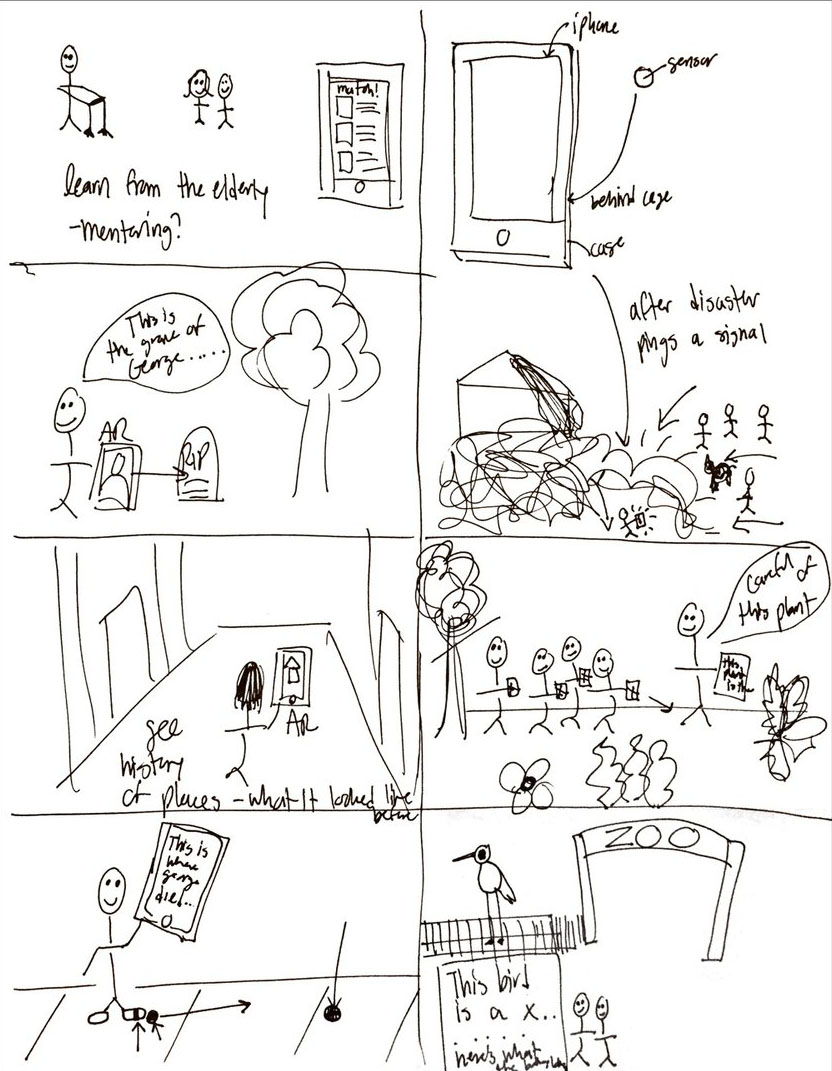 match!
learn from the elderly
-mentoring?
iphone
sensor
behind case
case
This is
the grave of
George......
AR
RIP
after disaster
pings a signal
AR
see
history
of places - what it looked like
before
careful of
this plant
this
plant
is the
This is
where
george
died...
ZOO
This bird
is a x..
here's what